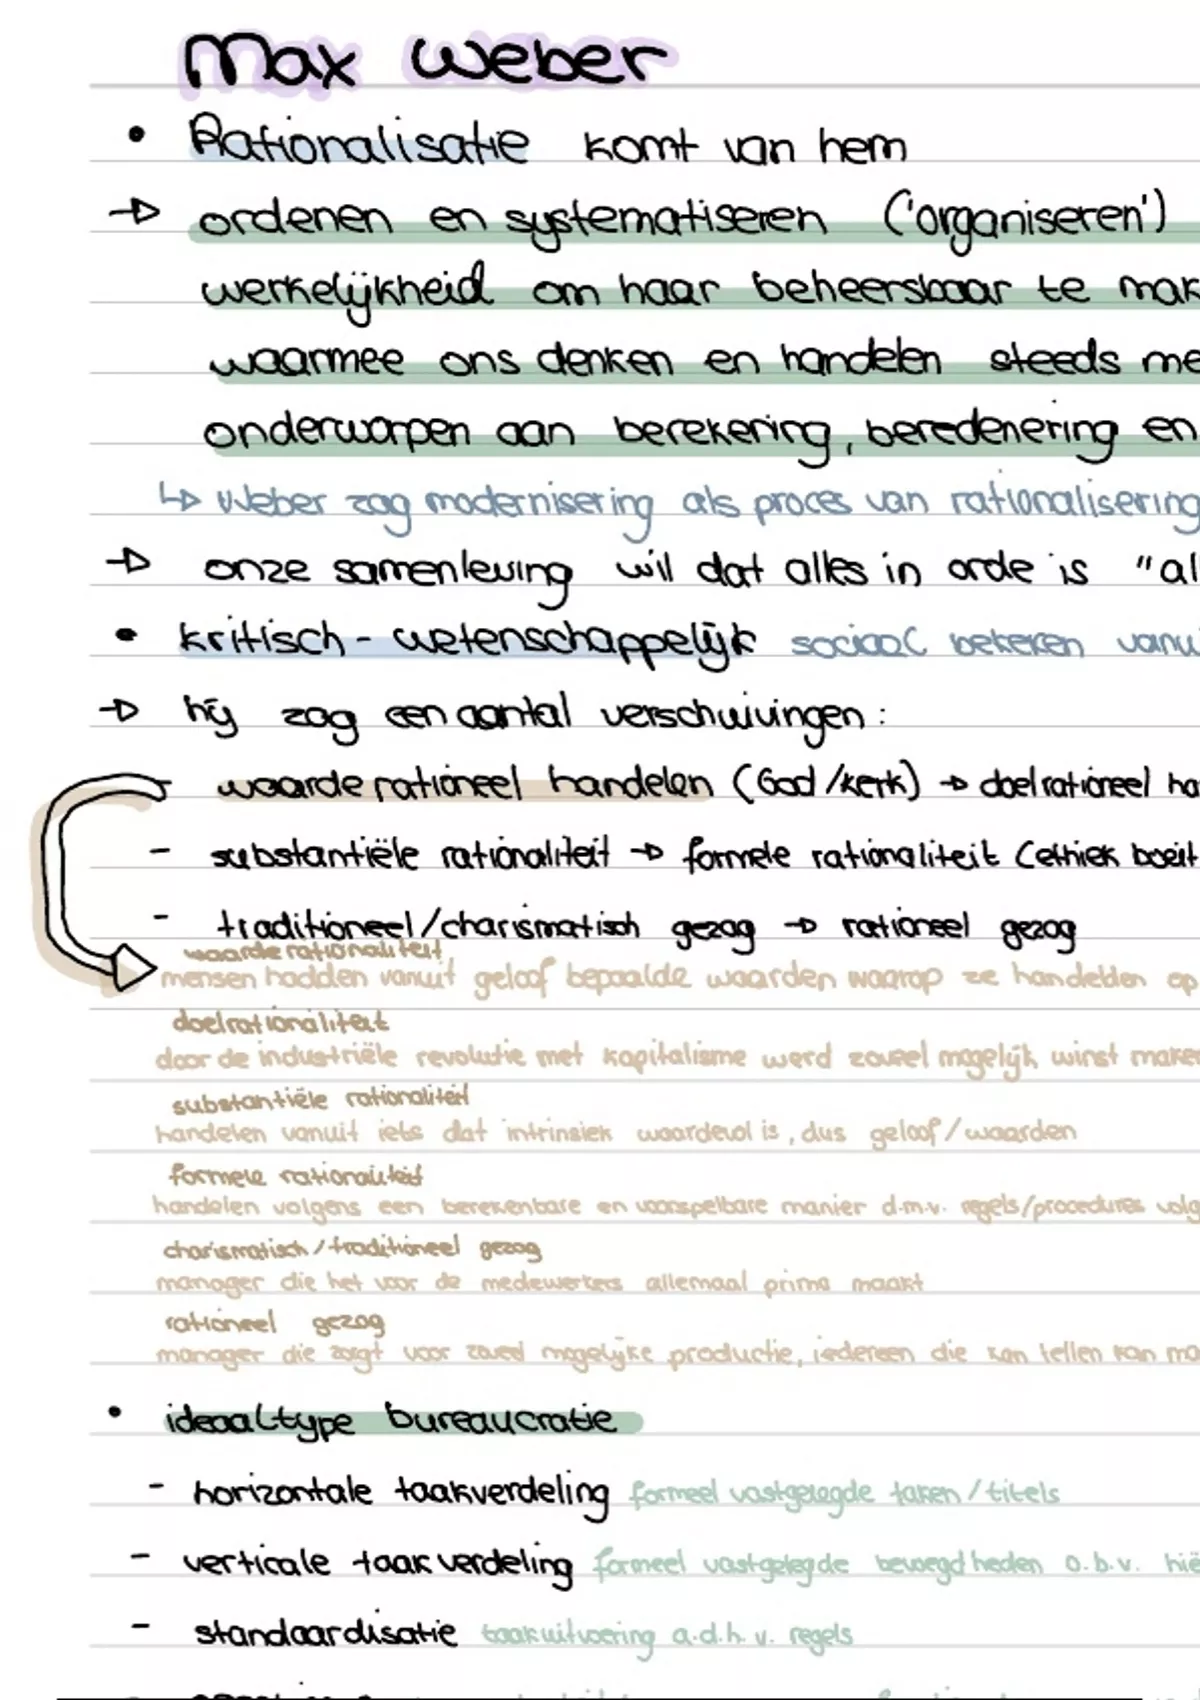 Max Weber
• Rationalisatie komt van hem
→ ordenen en systematiseren ('organiseren')
werkelijkheid om haar beheersbaar te mak
waarmee ons denken en handelen steeds me
onderworpen aan berekening, beredenering en
↳ Weber zag modernisering als proces van rationalisering
→ onze samenleving wil dat alles in orde is "al
• kritisch-wetenschappelijk sociaal bekeken vanu
→ hij zag een aantal verschuivingen:
- waarde rationeel handelen (God/kerk) → doelrationeel ha
- substantiële rationaliteit → formele rationaliteit (ethiek boeit
- traditioneel/charismatisch gezag → rationeel gezag
waarde rationaliteit
mensen hadden vanuit geloof bepaalde waarden waarop ze handelden op
doelrationaliteit
door de industriële revolutie met kapitalisme werd zoveel mogelijk winst maken
substantiële rationaliteit
handelen vanuit iets dat intrinsiek waardevol is, dus geloof/waarden
formele rationaliteit
handelen volgens een berekenbare en voorspelbare manier d.m.v. regels/procedures volg
charismatisch/traditioneel gezag
manager die het voor de medewerkers allemaal prima maakt
rationeel gezag
manager die zorgt voor zoveel mogelijke productie, iedereen die kan tellen kan ma
• ideaaltype bureaucratie
- horizontale taakverdeling formeel vastgelegde taken/titels
- verticale taakverdeling formeel vastgelegde bevoegdheden o.b.v. hië
- standaardisatie taakuitvoering a.d.h.v. regels